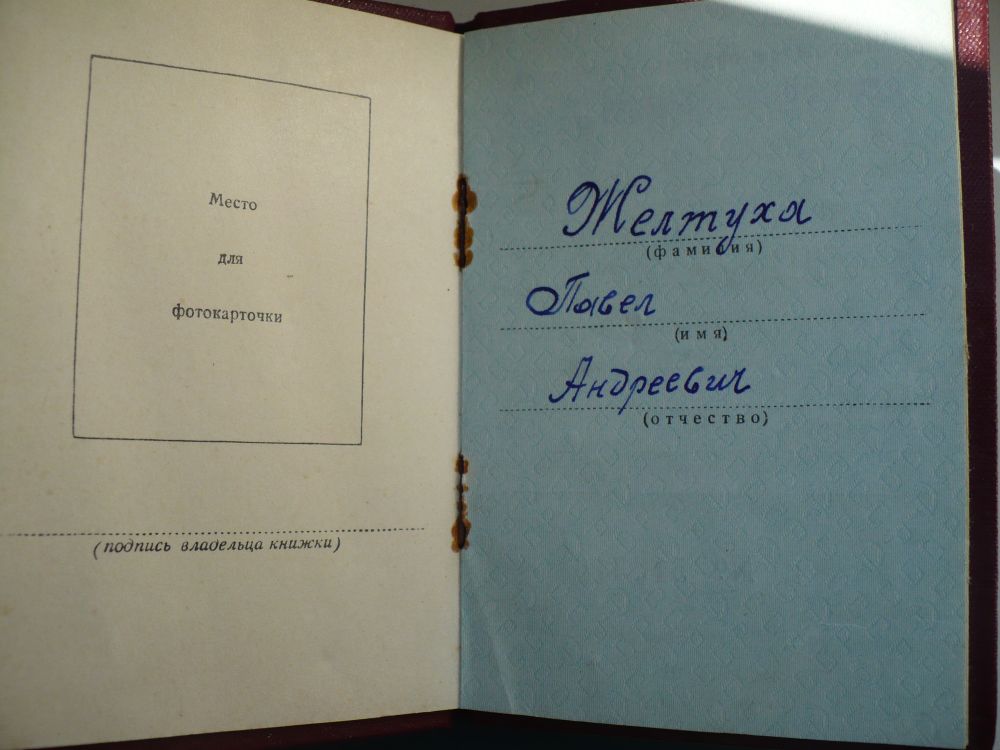 Место
для
фотокарточки
(подпись владельца книжки)
Желтуха
(фамилия)
Павел
(имя)
Андреевич
(отчество)